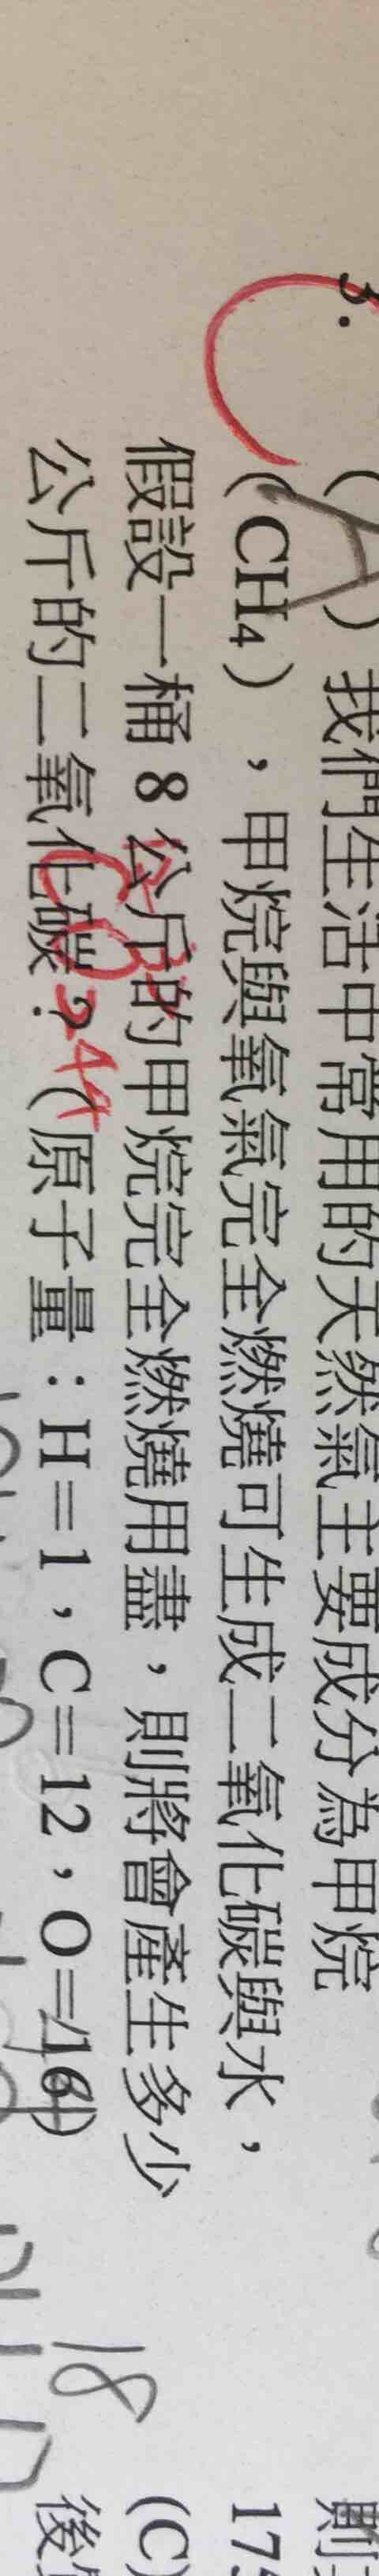 3. (A) 我們生活中常用的天然氣主要成分為甲烷
(CH₄)，甲烷與氧氣完全燃燒可生成二氧化碳與水，
假設一桶 8 公斤的甲烷完全燃燒用盡，則將會產生多少
公斤的二氧化碳？(原子量：H＝1，C＝12，O＝16)
CO₂
44
18
則
175
(C)
後